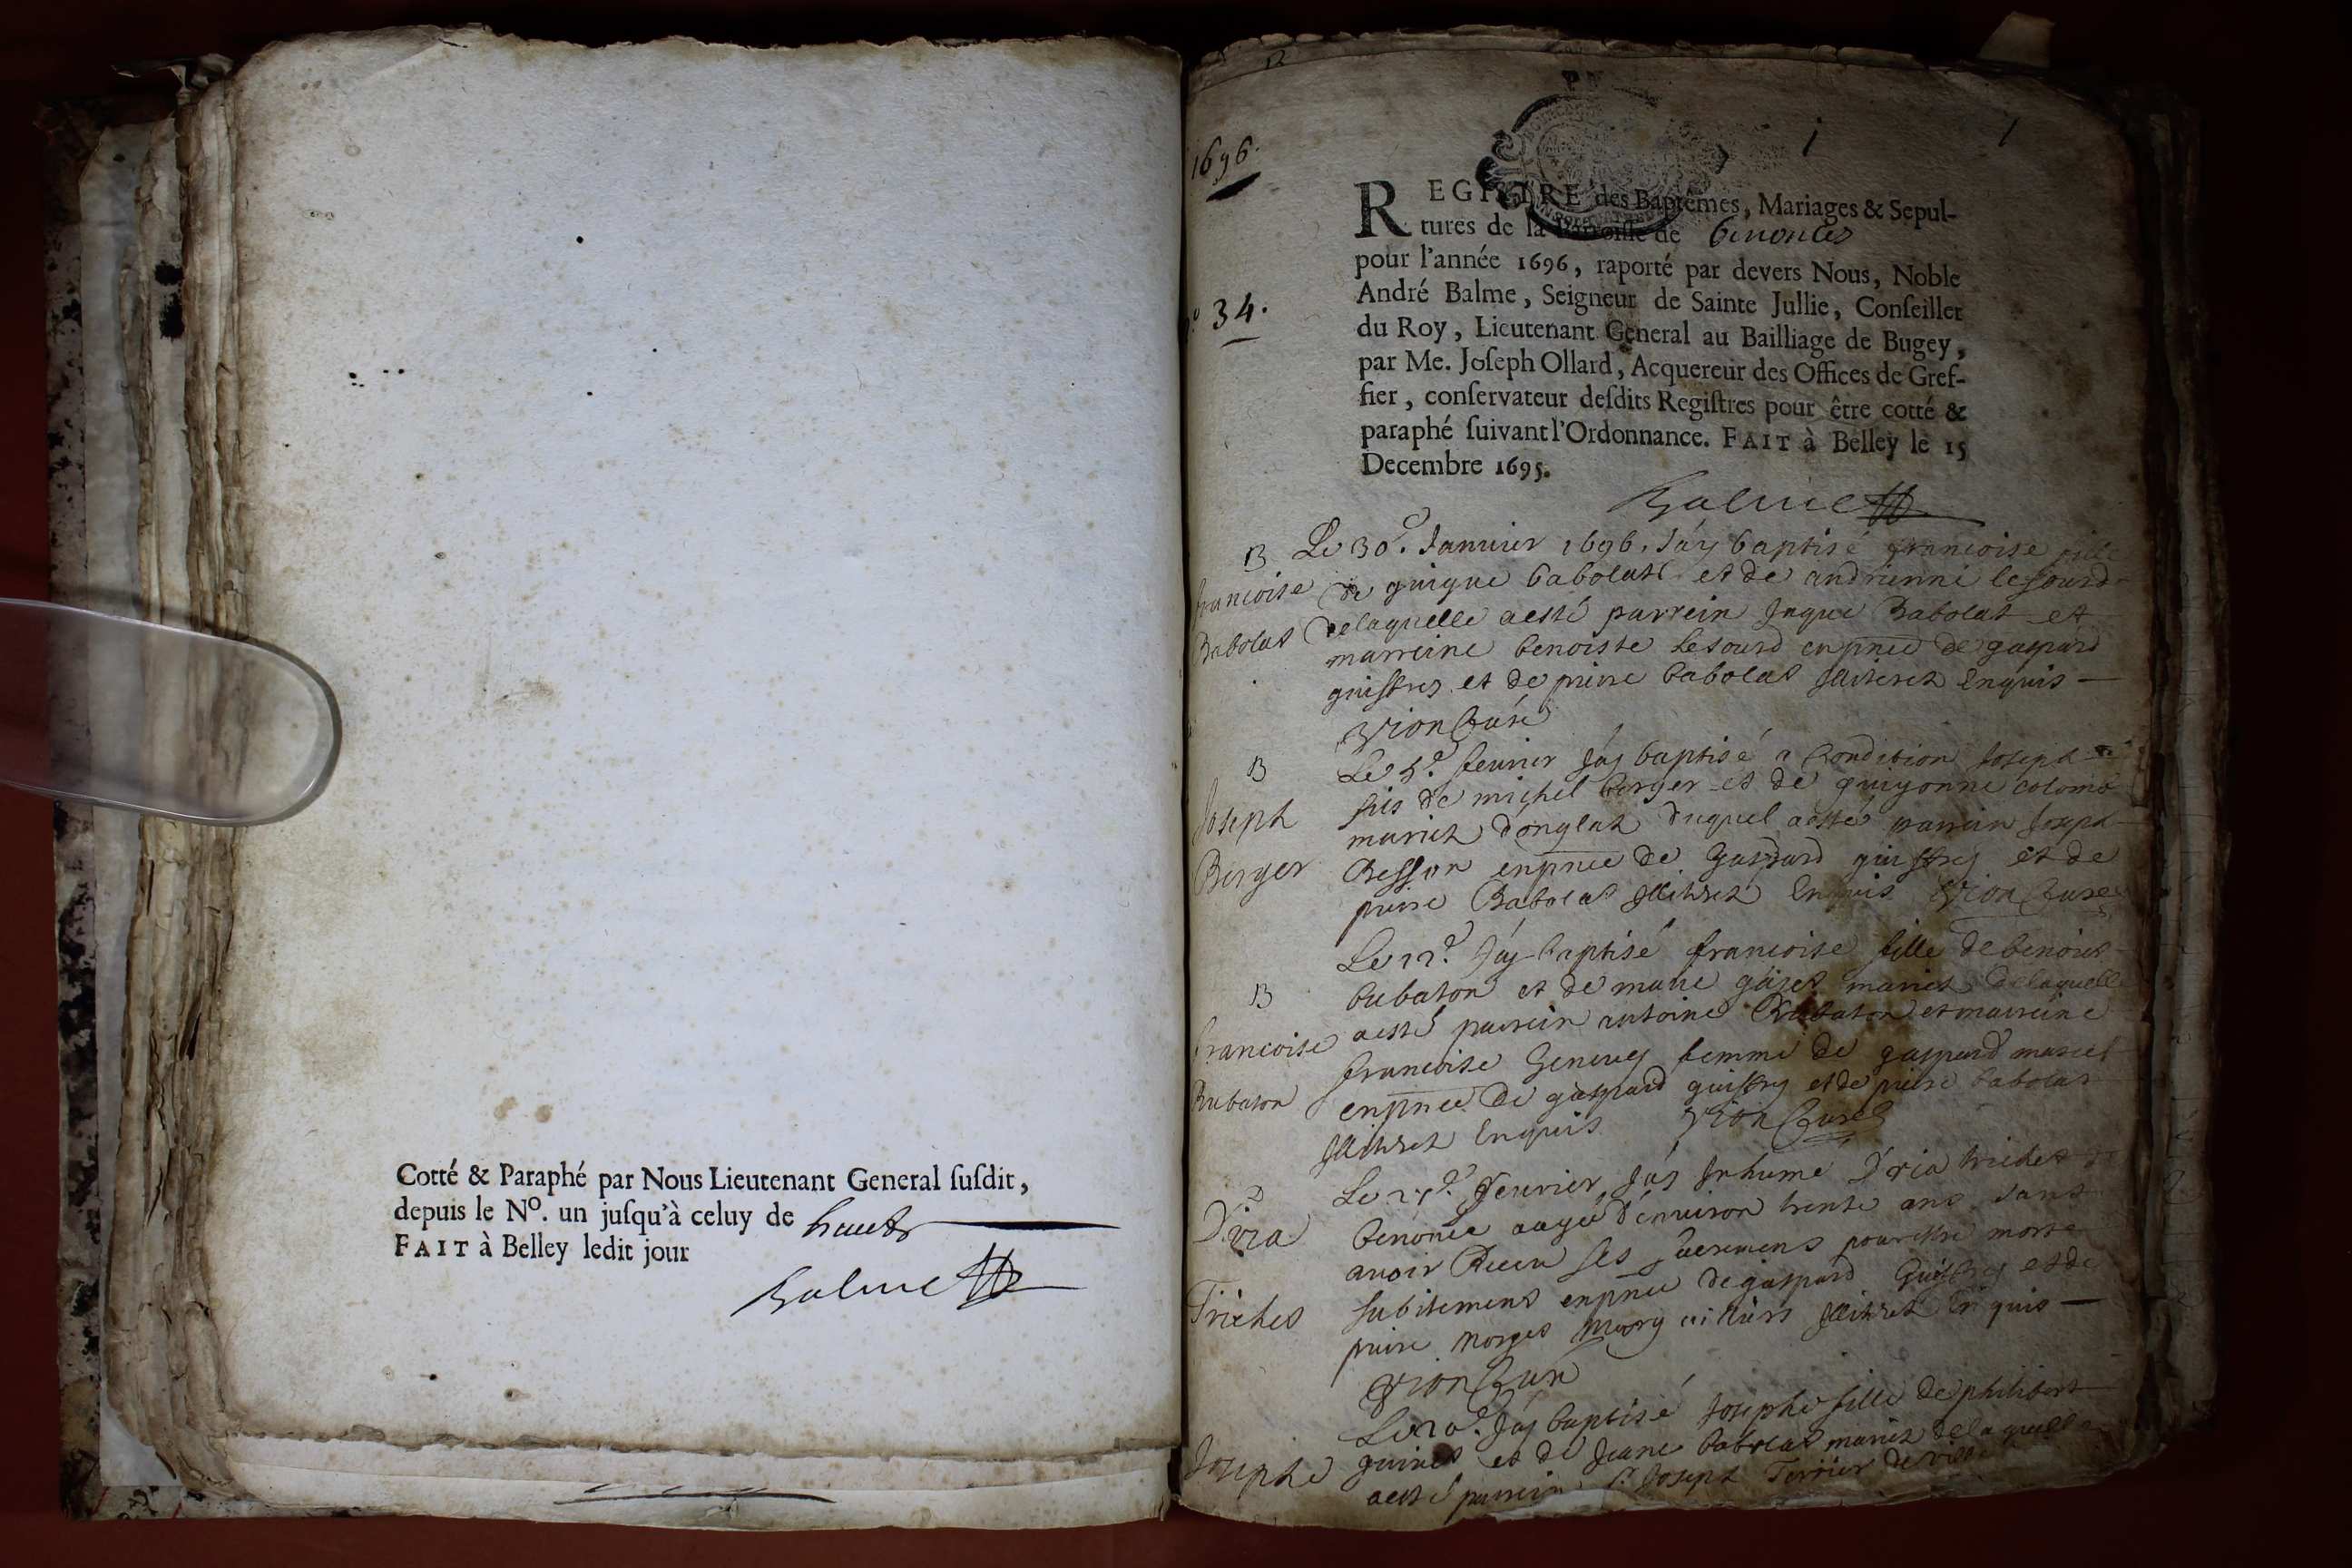 Cotté & Paraphé par Nous Lieutenant General ſuſdit,
depuis le N°. un juſqu'à celuy de huict
FAIT à Belley ledit jour
Balme
1696.
34.
REGISTRE des Baptêmes, Mariages & Sepul-
tures de la Parroiſſe de Benonces
pour l'année 1696, raporté par devers Nous, Noble
André Balme, Seigneur de Sainte Jullie, Conſeiller
du Roy, Lieutenant General au Bailliage de Bugey,
par Me. Joſeph Ollard, Acquereur des Offices de Gref-
fier, conſervateur deſdits Regiſtres pour être cotté &
paraphé ſuivant l'Ordonnance. FAIT à Belley le 15
Decembre 1695.
Balme
B
francoise
Babolat
Le 30e. Januier 1696. J'ay baptisé francoise fille
de guigue babolat et de andrienne lesourd
de laquelle aesté parrein Jaque Babolat et
marreine benoiste Lesourd enpnce de gaspard
guiffrey et de pierre babolat Illiterez Enquis
Vion Curé
B
Joseph
Berger
Le 5e. feurier J'ay baptisé a Condition Joseph
fils de michel berger et de guigonne colomb
mariez d'onglas duquel aesté parrein Joseph
Besson enpnce de Gaspard guiffrey et de
pierre Babolat Illiterez Enquis Vion Curé
B
francoise
Rubaton
J'ay baptisé francoise fille de benoist
Rubaton et de marie mariez de laquelle
aesté parrein antoine Rubaton et marreine
francoise femme de gaspard
enpnce de gaspard guiffrey et de pierre babolat
Illiterez Enquis Vion Curé
Triches
feurier J'ay Inhumé
benonce aagée d'enuiron trente ans sans
auoir Receu ses sacremens pour estre morte
subitement enpnce de gaspard Guiffrey et de
pierre Illiterez Enquis
Vion Curé
Josephe
J'ay baptisé Josephe fille de philibert
et de Jeane babolat mariez de laquelle
aesté parrein Sr. Joseph Terrier de